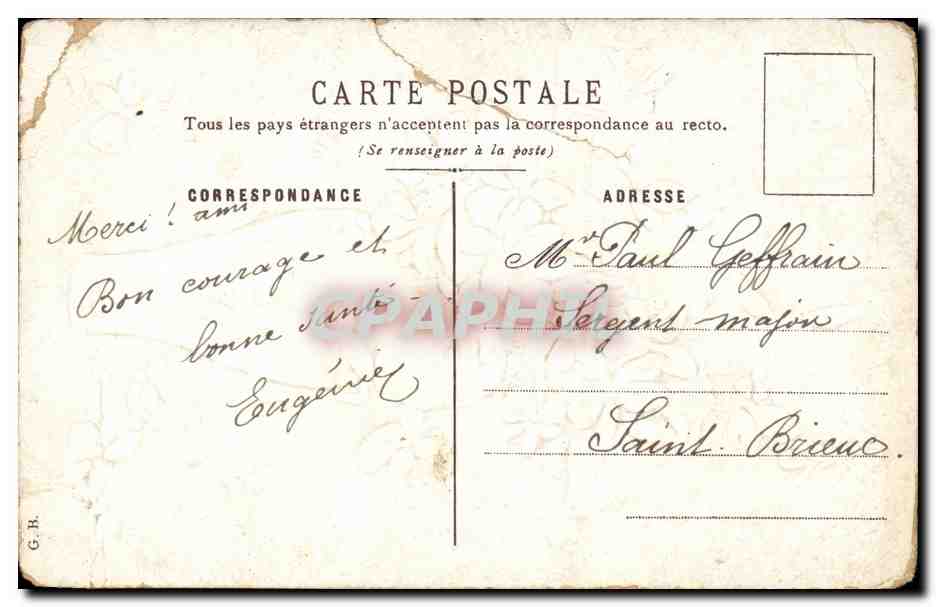 CARTE POSTALE
Tous les pays étrangers n'acceptent pas la correspondance au recto.
(Se renseigner à la poste)
CORRESPONDANCE
Merci ! ami
Bon courage et
bonne santé
Eugénie
ADRESSE
Mr Paul Geffrain
Sergent major
Saint-Brieuc.
G. B.
CPAPHIL